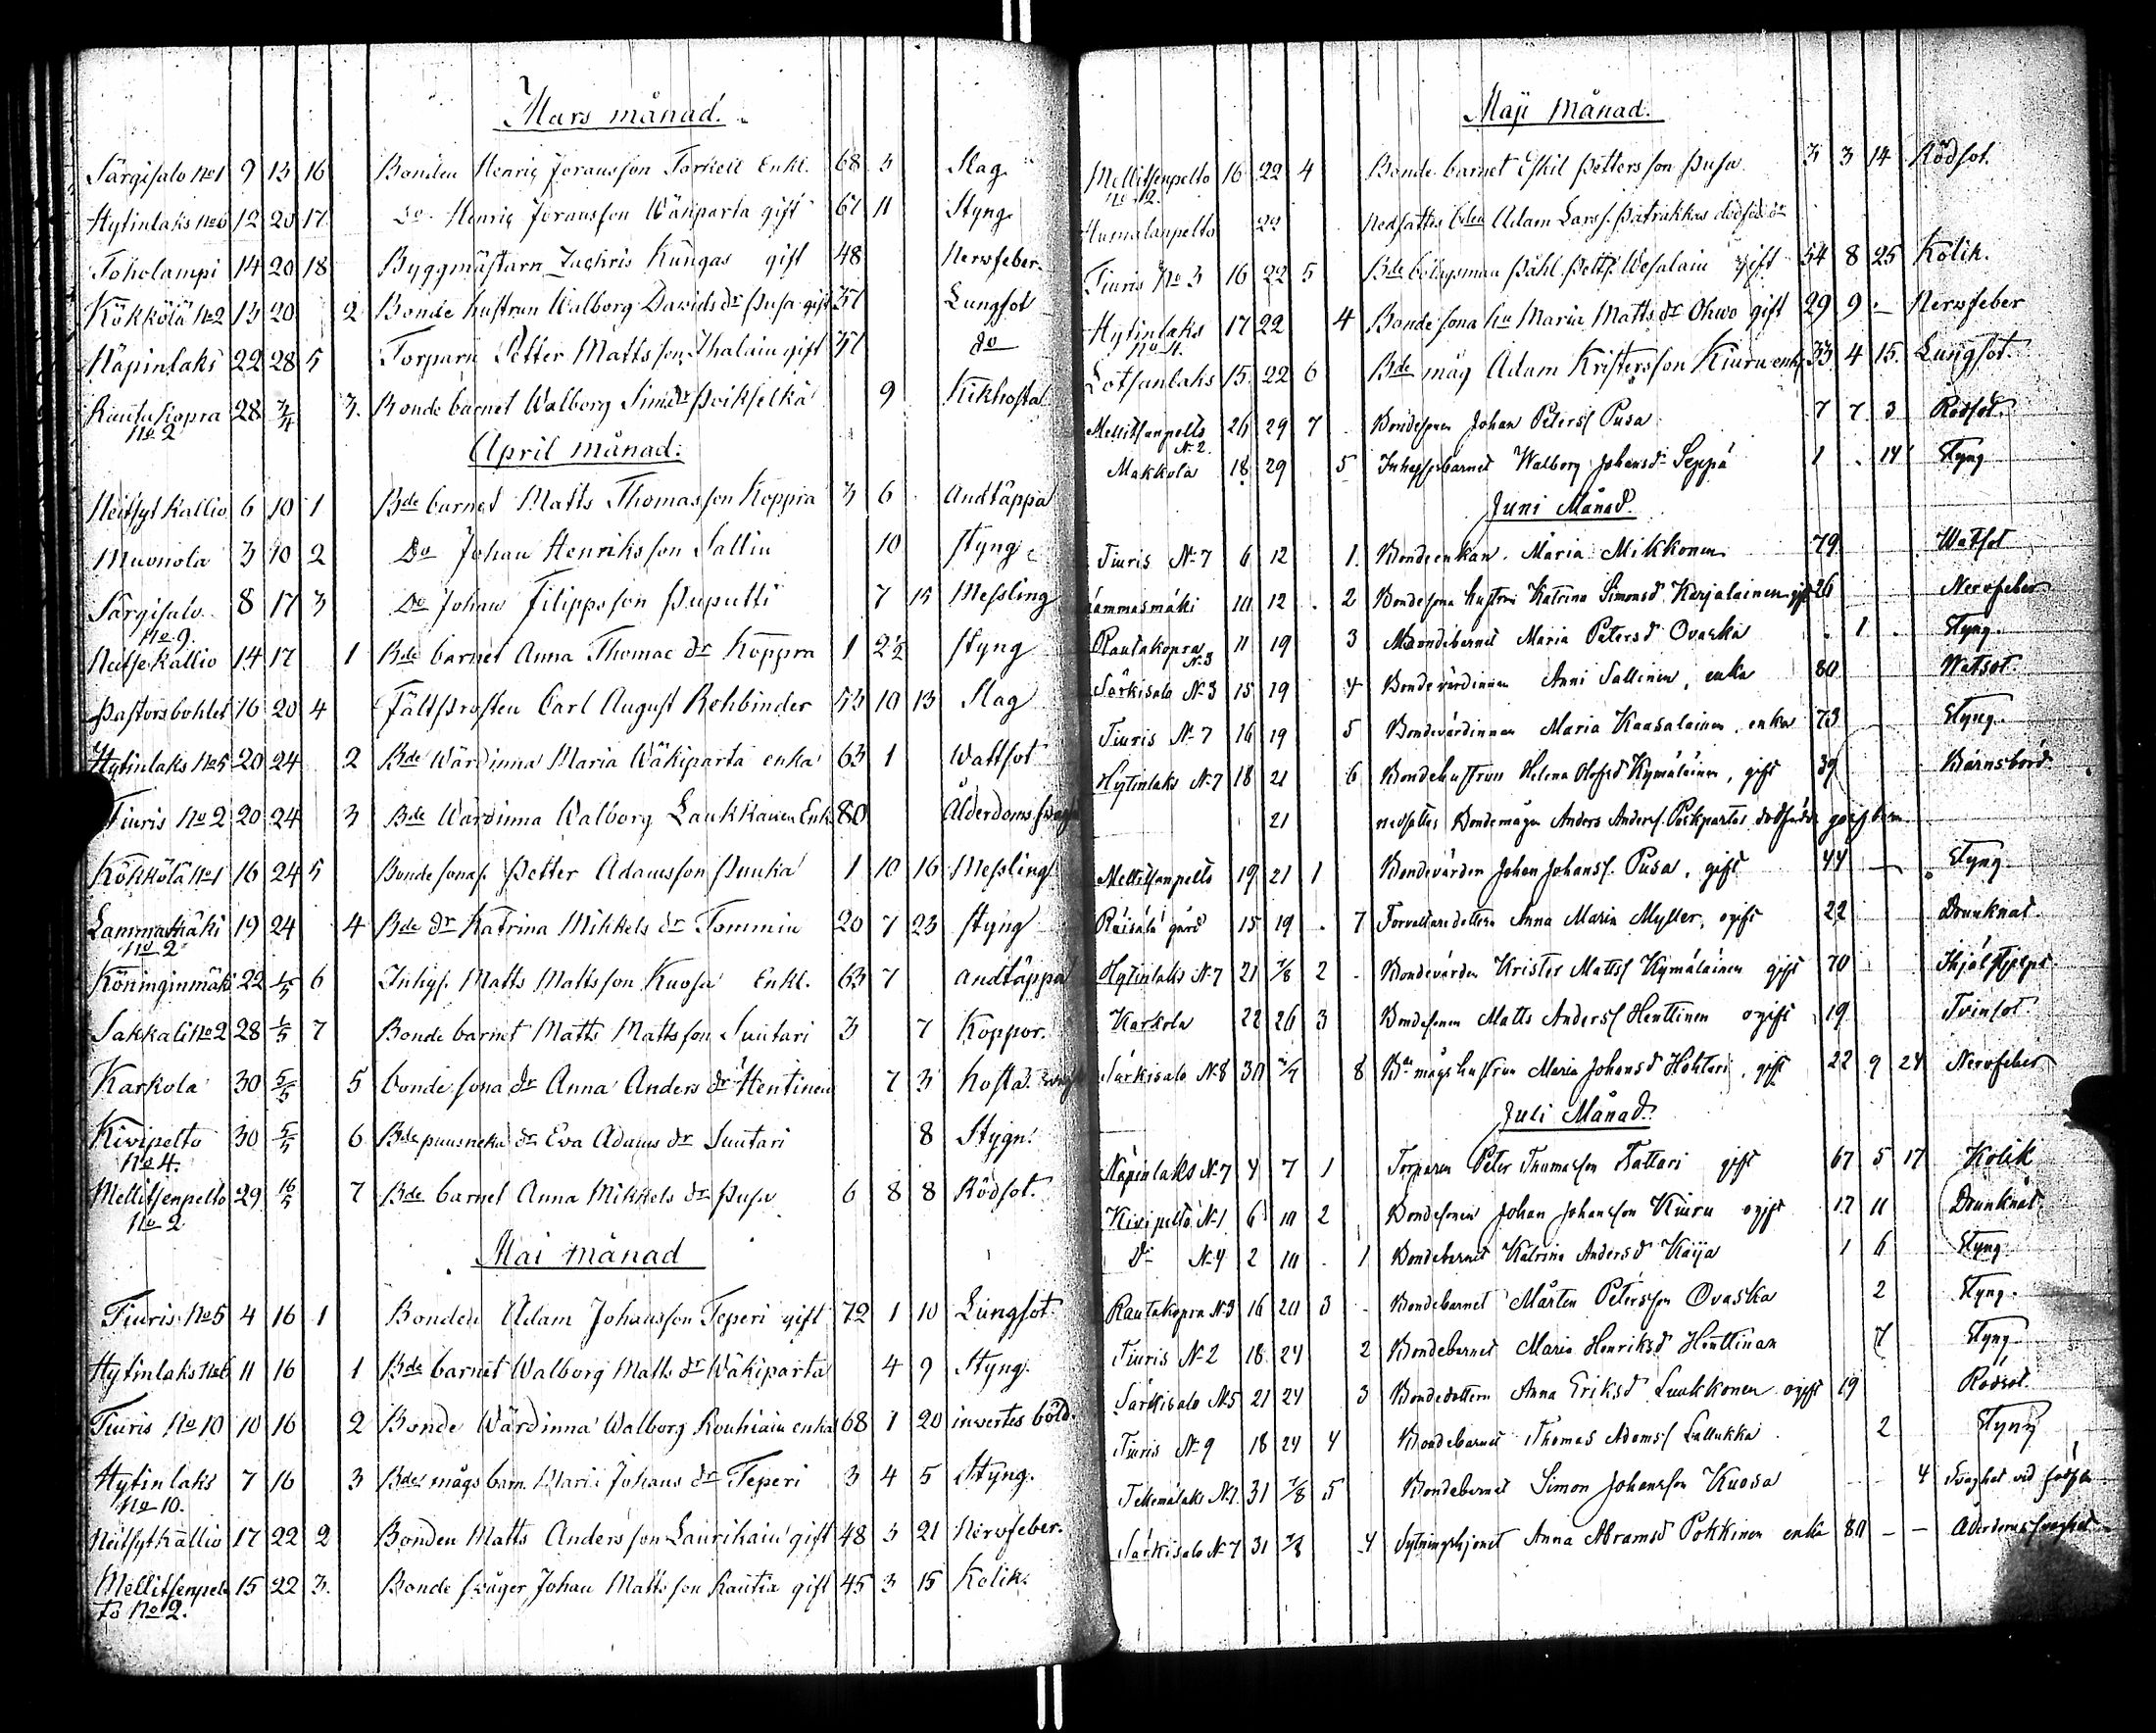 Mars månad.
Särgisalo No 1 9 13 16 Bonden Henric Joransson Torkeli Enkl. 68 3 Slag
Hytinlaks No 6 12 20 17 do Henric Joransson Wäkiparta gift 67 11 Styng
Toholampi 14 20 18 Byggmästarn Zachris Kungas gift 48 Nervfeber.
Kökkölä No 2 13 20 2 Bonde hustrun Walborg Davids dr Pusa gift 57 Lungsot
Näpinlaks 22 28 5 Torparn Petter Mattsson Ihalain gift 57 do
Rautu Kopra 28 3/4 3. Bonde barnet Walborg Sims dr Poikselkä 9 Kikhosta
No 2
April månad.
Neitsyt Kallio 6 10 1 Bde barnet Matts Thomasson Koppra 3 6 Andtäppa
Muonola 3 10 2 Do Johan Henriksson Sallin 10 styng
Särgisalo 8 17 3 Do Johan Filippsson Puputti 7 15 Messling
No 9.
Neitse Kallio 14 17 1 Bde barnet Anna Thomae dr Koppra 1 2½ styng
Pastorsbohlet 16 20 4 Fältprosten Carl August Rehbinder 53 10 13 Slag
Hytinlaks No 5 20 24 2 Bde Wärdinna Maria Wäkiparta enka 63 1 Wattsot
Tiuris No 2 20 24 3 Bde Wärdinna Walborg Laukkanen Enk. 80 Ålderdoms
Kökkölä No 1 16 24 5 Bonde sonas. Petter Adamsson Punka 1 10 16 Messling
Lammasmäki 19 24 4 Bde dr Katrina Mikkels dr Tommin 20 7 23 styng
No 2
Köninginmäki 22 1/5 6 Inhys. Matts Mattsson Kuosa Enkl. 63 7 andtäppa
Sakkali No 2 28 1/5 7 Bonde barnet Matts Mattsson Suutari 3 7 Koppor.
Karkola 30 5/5 5 bonde sona dr Anna Anders dr Hentinen 7 3 hosta.
Kivipelto 30 5/5 6 Bde dr Eva Adams dr Suutari 8 Stygn.
No 4.
Mellitsenpelto 29 16/5 7 Bde barnet Anna Mikkels dr Pusa 6 8 8 Rödsot.
No 2
Mai månad
Tiuris No 5 4 16 1 Bonden Adam Johansson Teperi gift 72 1 10 Lungsot
Hytinlaks No 6 11 16 1 Bde barnet Walborg Matts dr Wäkiparta 4 9 Styng.
Tiuris No 10 10 16 2 Bonde Wärdinna Walborg Rouhiain enka 68 1 20 invertes böld.
Hytinlaks 7 16 3 Bde mågs barn Maria Johans dr Teperi 3 4 5 Styng.
No 10.
Neitsyt Kallio 17 22 2 Bonden Matts Andersson Laurikain gift 48 3 21 Nervfeber.
Mellitsenpel 15 22 3. Bonde swåger Johan Mattsson Rautia gift 45 3 15 Kolik.
to No 2.
Maji Månad.
Mellitsenpelto 16 22 4 Bonde barnet Eskil Pettersson Pusa 3 3 14 Rödsot.
No 12.
Humalanpelto 22 Nedsattes bden Adam Larss. Patrakkas dödföd
Tiuris No 3 16 22 5 Bde Påhl Petts. Wesalain gift 54 8 25 Kolik.
Hytinlaks 17 22 4 Bonde sona hu Maria Matts dr Ohwo gift 29 9 – Nervfeber
No 4.
Lötsänlaks 15 22 6 Bde måg Adam Kristersson Kiuru enkl. 33 4 15. Lungsot.
Mellitsenpelto 26 29 7 Bondesonen Johan Peterss Pusa 7 7 3 Rödsot.
N. 2.
Makkola 18 29 5 Inhysesbarnet Walborg Johansd Seppä 1 . 14 Styng
Juni Månad.
Tiuris N 7 6 12 1. Bondeenkan Maria Mikkonen 79 Watsot
Lammasmäki 10 12 2 Bondesona hustrun Katrina Simonsd Karjalainen gift 26 Nervfeber
Rautakopra 11 19 3 Bondebarnet Maria Petersd Ovaska . 1 . Styng.
N. 3
Särkisalo N 3 15 19 4 Bondevärdinnan Anni Sallinen, enka 80 Watsot.
Tiuris N 7 16 19 5 Bondevärdinnan Maria Kaasalainen, enka 73 – Styng.
Hytinlaks N 7 18 21 6 Bondehustrun Helena Olofsd Kymäläinen, gift 39 Barnsbörd.
21 nedsattes Bondemågen Anders Anderss. Poikpartas dödfödde
Mellitsenpelto 19 21 1 Bondevärden Johan Johanss. Pusa, gift 44 – Styng
Räisälä gård 15 19 . 7 Forvaltaredottern Anna Maria Mysler, ogift 22 Drunknat.
Hytinlaks N 7 21 1/8 2 Bondevärden Krister Mattss Kymäläinen gift 70
Karkola 22 26 3 Bondesonen Matts Anderss Henttinen ogift 19 Tvinsot.
Särkisalo N 8 30 8 Bde mågs hustrun Maria Johansd Hohteri, gift 22 9 24 Nervfeber
Juli Månad.
Näpinlaks N 7 4 7 1 Torparen Peter Thomasson Tattari gift 67 5 17 Kolik
Kivipelto N 1 6 10 2 Bondesonen Johan Johansson Kiuru ogift 17 11 Drunknat.
do N 4 2 10 . 1 Bondebarnet Katrina Andersd Kaija 1 6 Styng
Rautakopra N 3 16 20 3 Bondebarnet Mårten Petersson Ovaska 2 Styng.
Tiuris N 2 18 24 2 Bondebarnet Maria Henriksd Henttinen 7 Styng
Särkisalo N 5 21 24 3 Bondedottern Anna Eriksd Luukkonen ogift 19 Rödsot.
Tiuris N 9 18 24 4 Bondebarnet Thomas Adamss Lallukka 2 Styng
N 1. 31 5 Bondebarnet Simon Johansson Kuosa 4 Svaghet vid
Särkisalo N 7 31 4 Sytningshjonet Anna Abramsd Pokkinen enka 80 – – Ålderdomssvaghet